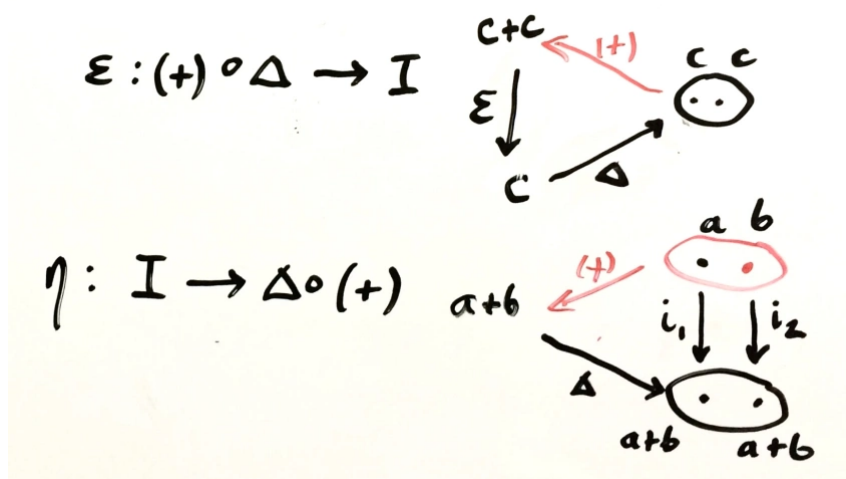 ε : (+) ∘ Δ → I
c+c
(+)
c c
ε
c
Δ
η : I → Δ∘(+)
a b
(+)
a+b
i₁ i₂
Δ
a+b a+b